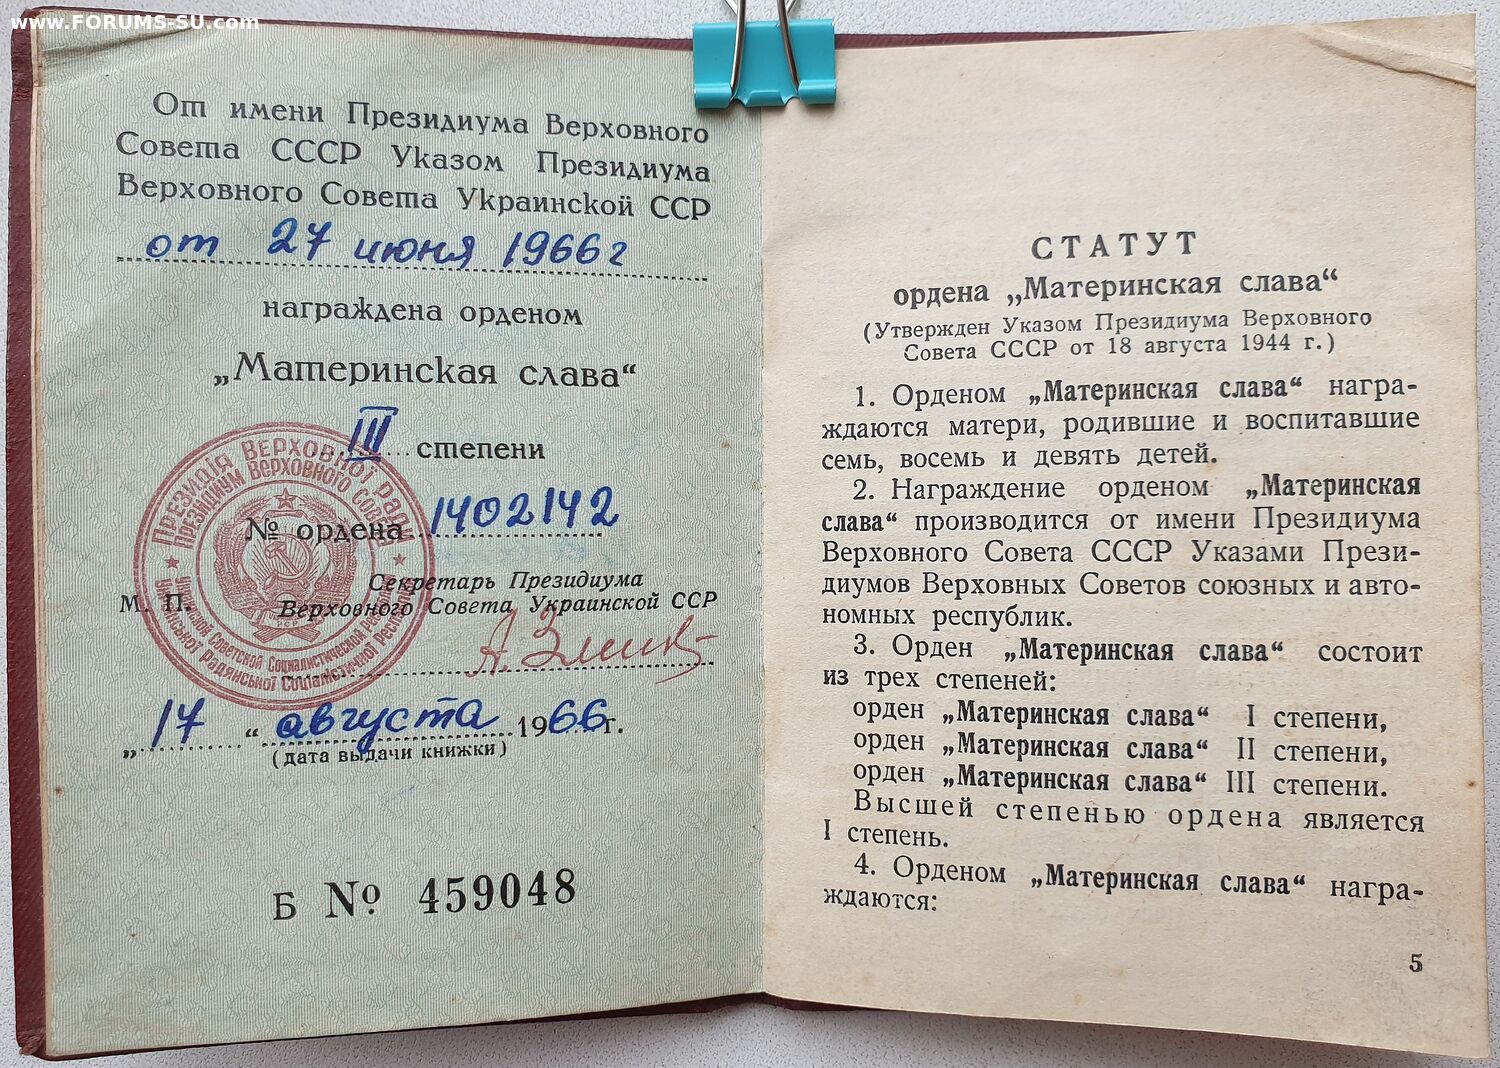 www.FORUMS-SU.com
От имени Президиума Верховного
Совета СССР Указом Президиума
Верховного Совета Украинской ССР
от 27 июня 1966г
награждена орденом
„Материнская слава“
III степени
№ ордена 1402142
Секретарь Президиума
М. П. Верховного Совета Украинской ССР
„17“ августа 1966г.
(дата выдачи книжки)
Б № 459048
ПРЕЗИДІЯ ВЕРХОВНОЇ РАДИ
ПРЕЗИДИУМ ВЕРХОВНОГО СОВЕТА
СТАТУТ
ордена „Материнская слава“
(Утвержден Указом Президиума Верховного
Совета СССР от 18 августа 1944 г.)
1. Орденом „Материнская слава“ награ-
ждаются матери, родившие и воспитавшие
семь, восемь и девять детей.
2. Награждение орденом „Материнская
слава“ производится от имени Президиума
Верховного Совета СССР Указами Прези-
диумов Верховных Советов союзных и авто-
номных республик.
3. Орден „Материнская слава“ состоит
из трех степеней:
орден „Материнская слава“ I степени,
орден „Материнская слава“ II степени,
орден „Материнская слава“ III степени.
Высшей степенью ордена является
I степень.
4. Орденом „Материнская слава“ награ-
ждаются:
5